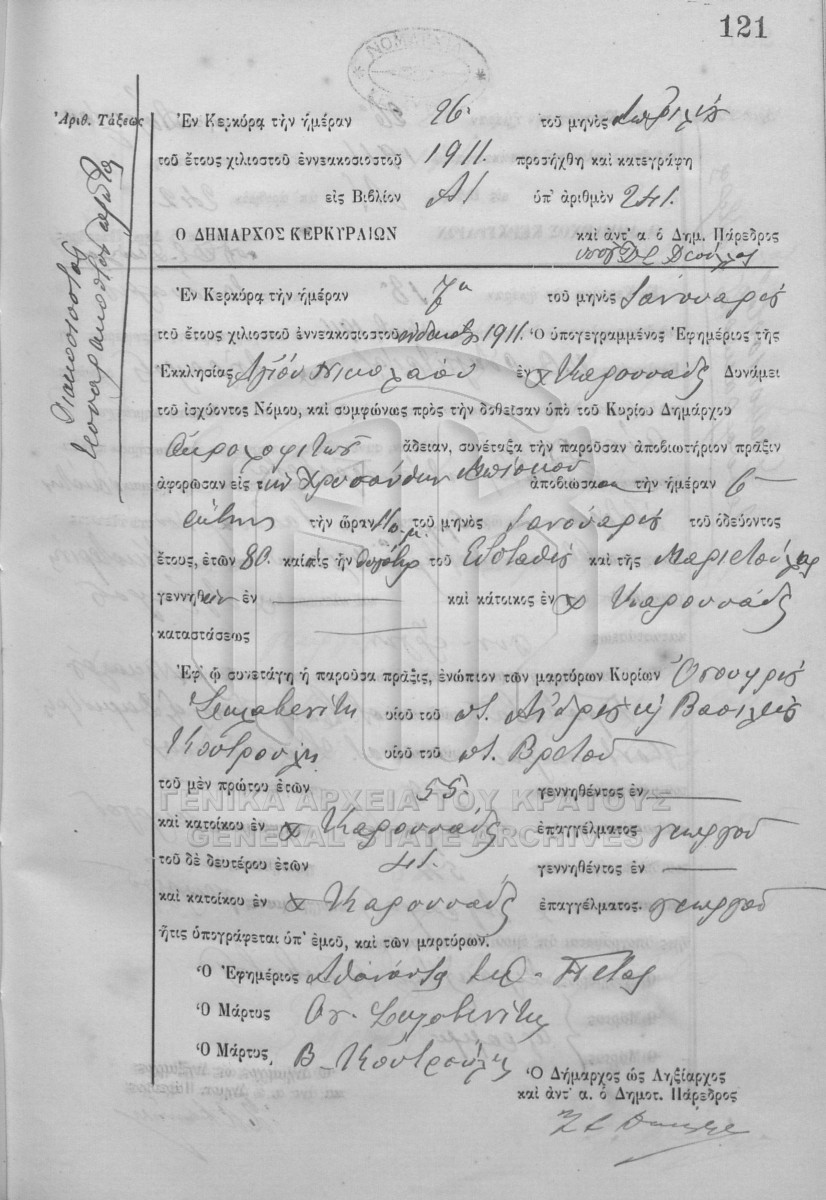 121
ΝΟΜΑΡΧΙΑ
Ἀριθ. Τάξεως
Διακοσιοστὸς τεσσαρακοστὸς πρῶτος
Ἐν Κερκύρᾳ τὴν ἡμέραν 26 τοῦ μηνὸς Ἀπριλίου
τοῦ ἔτους χιλιοστοῦ ἐννεακοσιοστοῦ 1911. προσήχθη καὶ κατεγράφη
εἰς Βιβλίον Α1 ὑπ' ἀριθμὸν 241.
Ὁ ΔΗΜΑΡΧΟΣ ΚΕΡΚΥΡΑΙΩΝ καὶ ἀντ' α. ὁ Δημ. Πάρεδρος
Ἐν Κερκύρᾳ τὴν ἡμέραν 7η τοῦ μηνὸς Ἰανουαρίου
τοῦ ἔτους χιλιοστοῦ ἐννεακοσιοστοῦ ἑνδεκάτου 1911. Ὁ ὑπογεγραμμένος Ἐφημέριος τῆς
Ἐκκλησίας Ἁγίου Νικολάου ἐν χ Καρουσάδες Δυνάμει
τοῦ ἰσχύοντος Νόμου, καὶ συμφώνως πρὸς τὴν δοθεῖσαν ὑπὸ τοῦ Κυρίου Δημάρχου
ἄδειαν, συνέταξα τὴν παροῦσαν ἀποβιωτήριον πρᾶξιν
ἀφορῶσαν εἰς τὴν Χρυσάνθην ἀποβιώσασα τὴν ἡμέραν 6
τὴν ὥραν τοῦ μηνὸς Ἰανουαρίου τοῦ ὁδεύοντος
ἔτους, ἐτῶν 80. καί τις ἦν θυγάτηρ τοῦ Εὐσταθίου καὶ τῆς Μαριετούλας
γεννηθ ἐν — καὶ κάτοικος ἐν χ Καρουσάδες
καταστάσεως —
Ἐφ' ᾧ συνετάγη ἡ παροῦσα πρᾶξις, ἐνώπιον τῶν μαρτύρων Κυρίων
υἱοῦ τοῦ π. Ἀνδρέου κ Βασιλείου
Κουτρούλη υἱοῦ τοῦ π.
τοῦ μὲν πρώτου ἐτῶν 55 γεννηθέντος ἐν —
ΓΕΝΙΚΑ ΑΡΧΕΙΑ ΤΟΥ ΚΡΑΤΟΥΣ
καὶ κατοίκου ἐν χ Καρουσάδες ἐπαγγέλματος γεωργοῦ
GENERAL STATE ARCHIVES
τοῦ δὲ δευτέρου ἐτῶν 41. γεννηθέντος ἐν —
καὶ κατοίκου ἐν χ Καρουσάδες ἐπαγγέλματος. γεωργοῦ
ἥτις ὑπογράφεται ὑπ' ἐμοῦ, καὶ τῶν μαρτύρων.
Ὁ Ἐφημέριος
Ὁ Μάρτυς
Ὁ Μάρτυς, Β. Κουτρούλης
Ὁ Δήμαρχος ὡς Ληξίαρχος
καὶ ἀντ' α. ὁ Δημοτ. Πάρεδρος